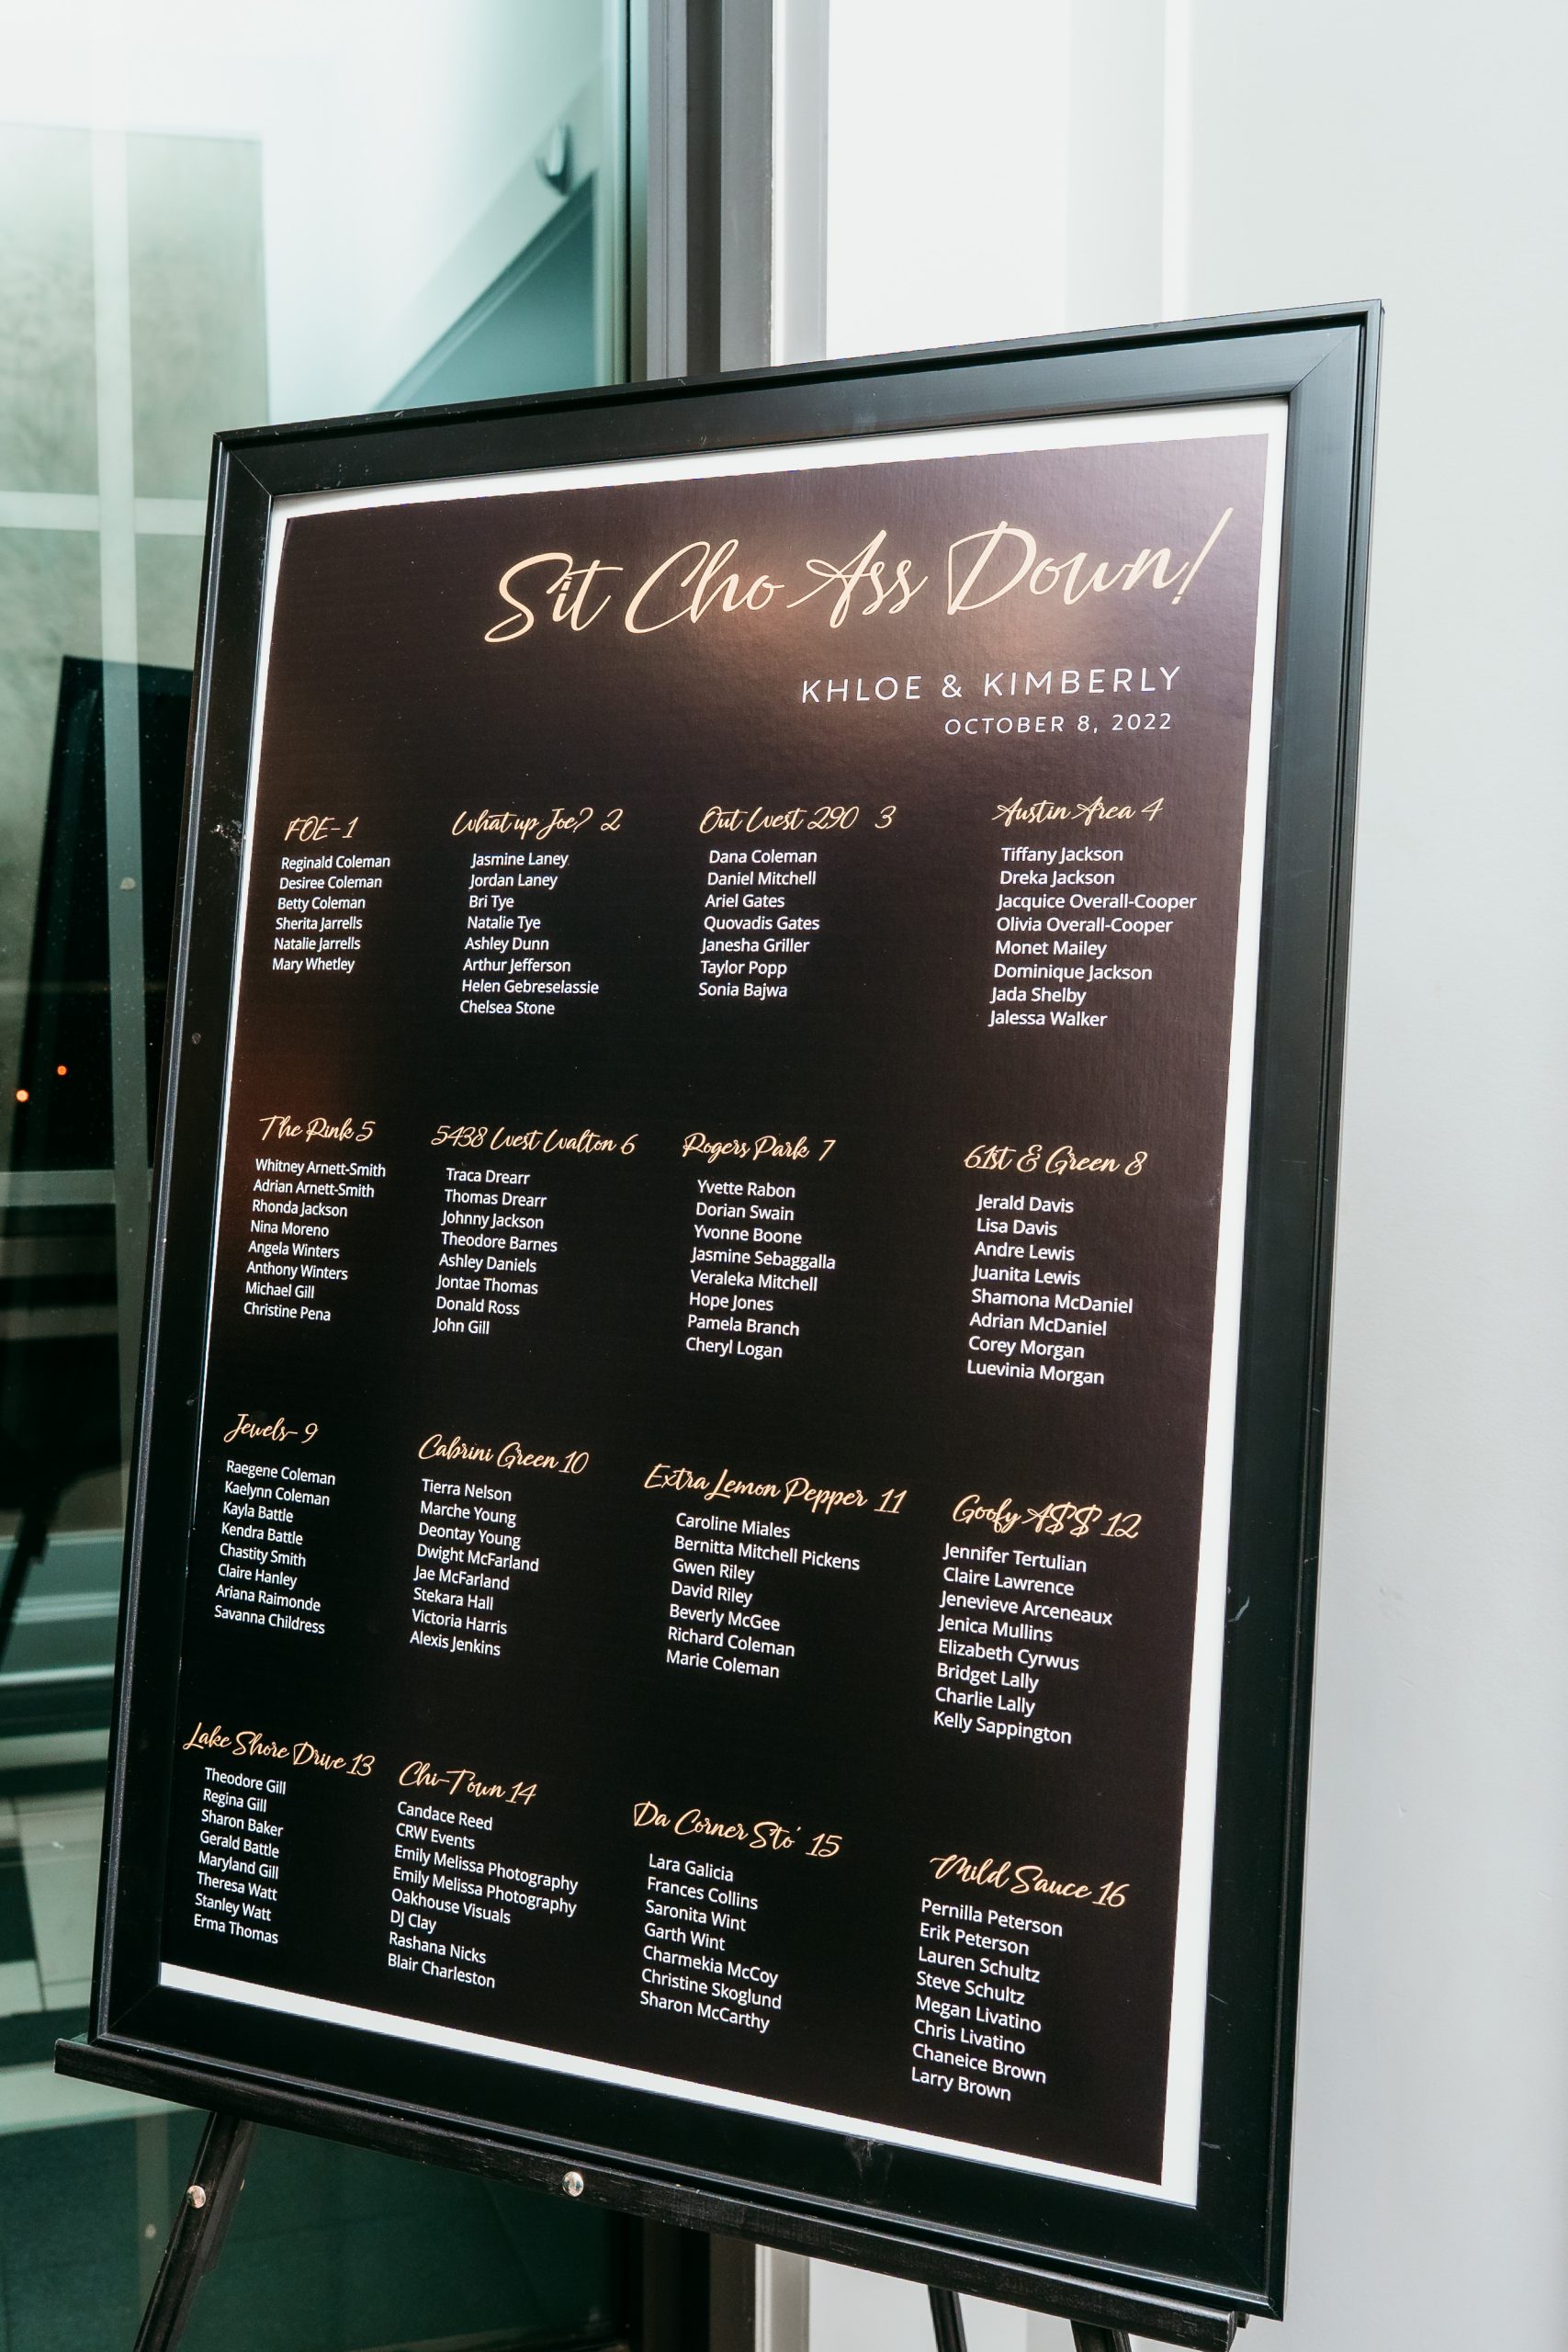 Sit Cho Ass Down!
KHLOE & KIMBERLY
OCTOBER 8, 2022
FOE-1
Reginald Coleman
Desiree Coleman
Betty Coleman
Sherita Jarrells
Natalie Jarrells
Mary Whetley
What up Joe? 2
Jasmine Laney
Jordan Laney
Bri Tye
Natalie Tye
Ashley Dunn
Arthur Jefferson
Helen Gebreselassie
Chelsea Stone
Out West 290 3
Dana Coleman
Daniel Mitchell
Ariel Gates
Quovadis Gates
Janesha Griller
Taylor Popp
Sonia Bajwa
Austin Area 4
Tiffany Jackson
Dreka Jackson
Jacquice Overall-Cooper
Olivia Overall-Cooper
Monet Mailey
Dominique Jackson
Jada Shelby
Jalessa Walker
The Rink 5
Whitney Arnett-Smith
Adrian Arnett-Smith
Rhonda Jackson
Nina Moreno
Angela Winters
Anthony Winters
Michael Gill
Christine Pena
5438 West Walton 6
Traca Drearr
Thomas Drearr
Johnny Jackson
Theodore Barnes
Ashley Daniels
Jontae Thomas
Donald Ross
John Gill
Rogers Park 7
Yvette Rabon
Dorian Swain
Yvonne Boone
Jasmine Sebaggalla
Veraleka Mitchell
Hope Jones
Pamela Branch
Cheryl Logan
61st & Green 8
Jerald Davis
Lisa Davis
Andre Lewis
Juanita Lewis
Shamona McDaniel
Adrian McDaniel
Corey Morgan
Luevinia Morgan
Jewels- 9
Raegene Coleman
Kaelynn Coleman
Kayla Battle
Kendra Battle
Chastity Smith
Claire Hanley
Ariana Raimonde
Savanna Childress
Cabrini Green 10
Tierra Nelson
Marche Young
Deontay Young
Dwight McFarland
Jae McFarland
Stekara Hall
Victoria Harris
Alexis Jenkins
Extra Lemon Pepper 11
Caroline Miales
Bernitta Mitchell Pickens
Gwen Riley
David Riley
Beverly McGee
Richard Coleman
Marie Coleman
Goofy A$$ 12
Jennifer Tertulian
Claire Lawrence
Jenevieve Arceneaux
Jenica Mullins
Elizabeth Cyrwus
Bridget Lally
Charlie Lally
Kelly Sappington
Lake Shore Drive 13
Theodore Gill
Regina Gill
Sharon Baker
Gerald Battle
Maryland Gill
Theresa Watt
Stanley Watt
Erma Thomas
Chi-Town 14
Candace Reed
CRW Events
Emily Melissa Photography
Emily Melissa Photography
Oakhouse Visuals
DJ Clay
Rashana Nicks
Blair Charleston
Da Corner Sto' 15
Lara Galicia
Frances Collins
Saronita Wint
Garth Wint
Charmekia McCoy
Christine Skoglund
Sharon McCarthy
Mild Sauce 16
Pernilla Peterson
Erik Peterson
Lauren Schultz
Steve Schultz
Megan Livatino
Chris Livatino
Chaneice Brown
Larry Brown